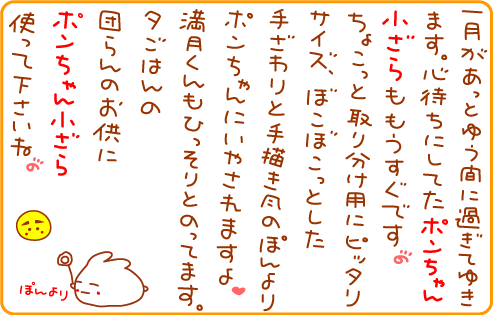 一月があっとゆう間に過ぎてゆき
ます。心待ちにしてたポンちゃん
小ざらももうすぐです
ちょこっと取り分け用にピッタリ
サイズ、ぼこぼこっとした
手ざわりと手描き風のぽんより
ポンちゃんにいやされますよ
満月くんもひっそりとのってます。
夕ごはんの
団らんのお供に
ポンちゃん小ざら
使って下さいね
ぽんより